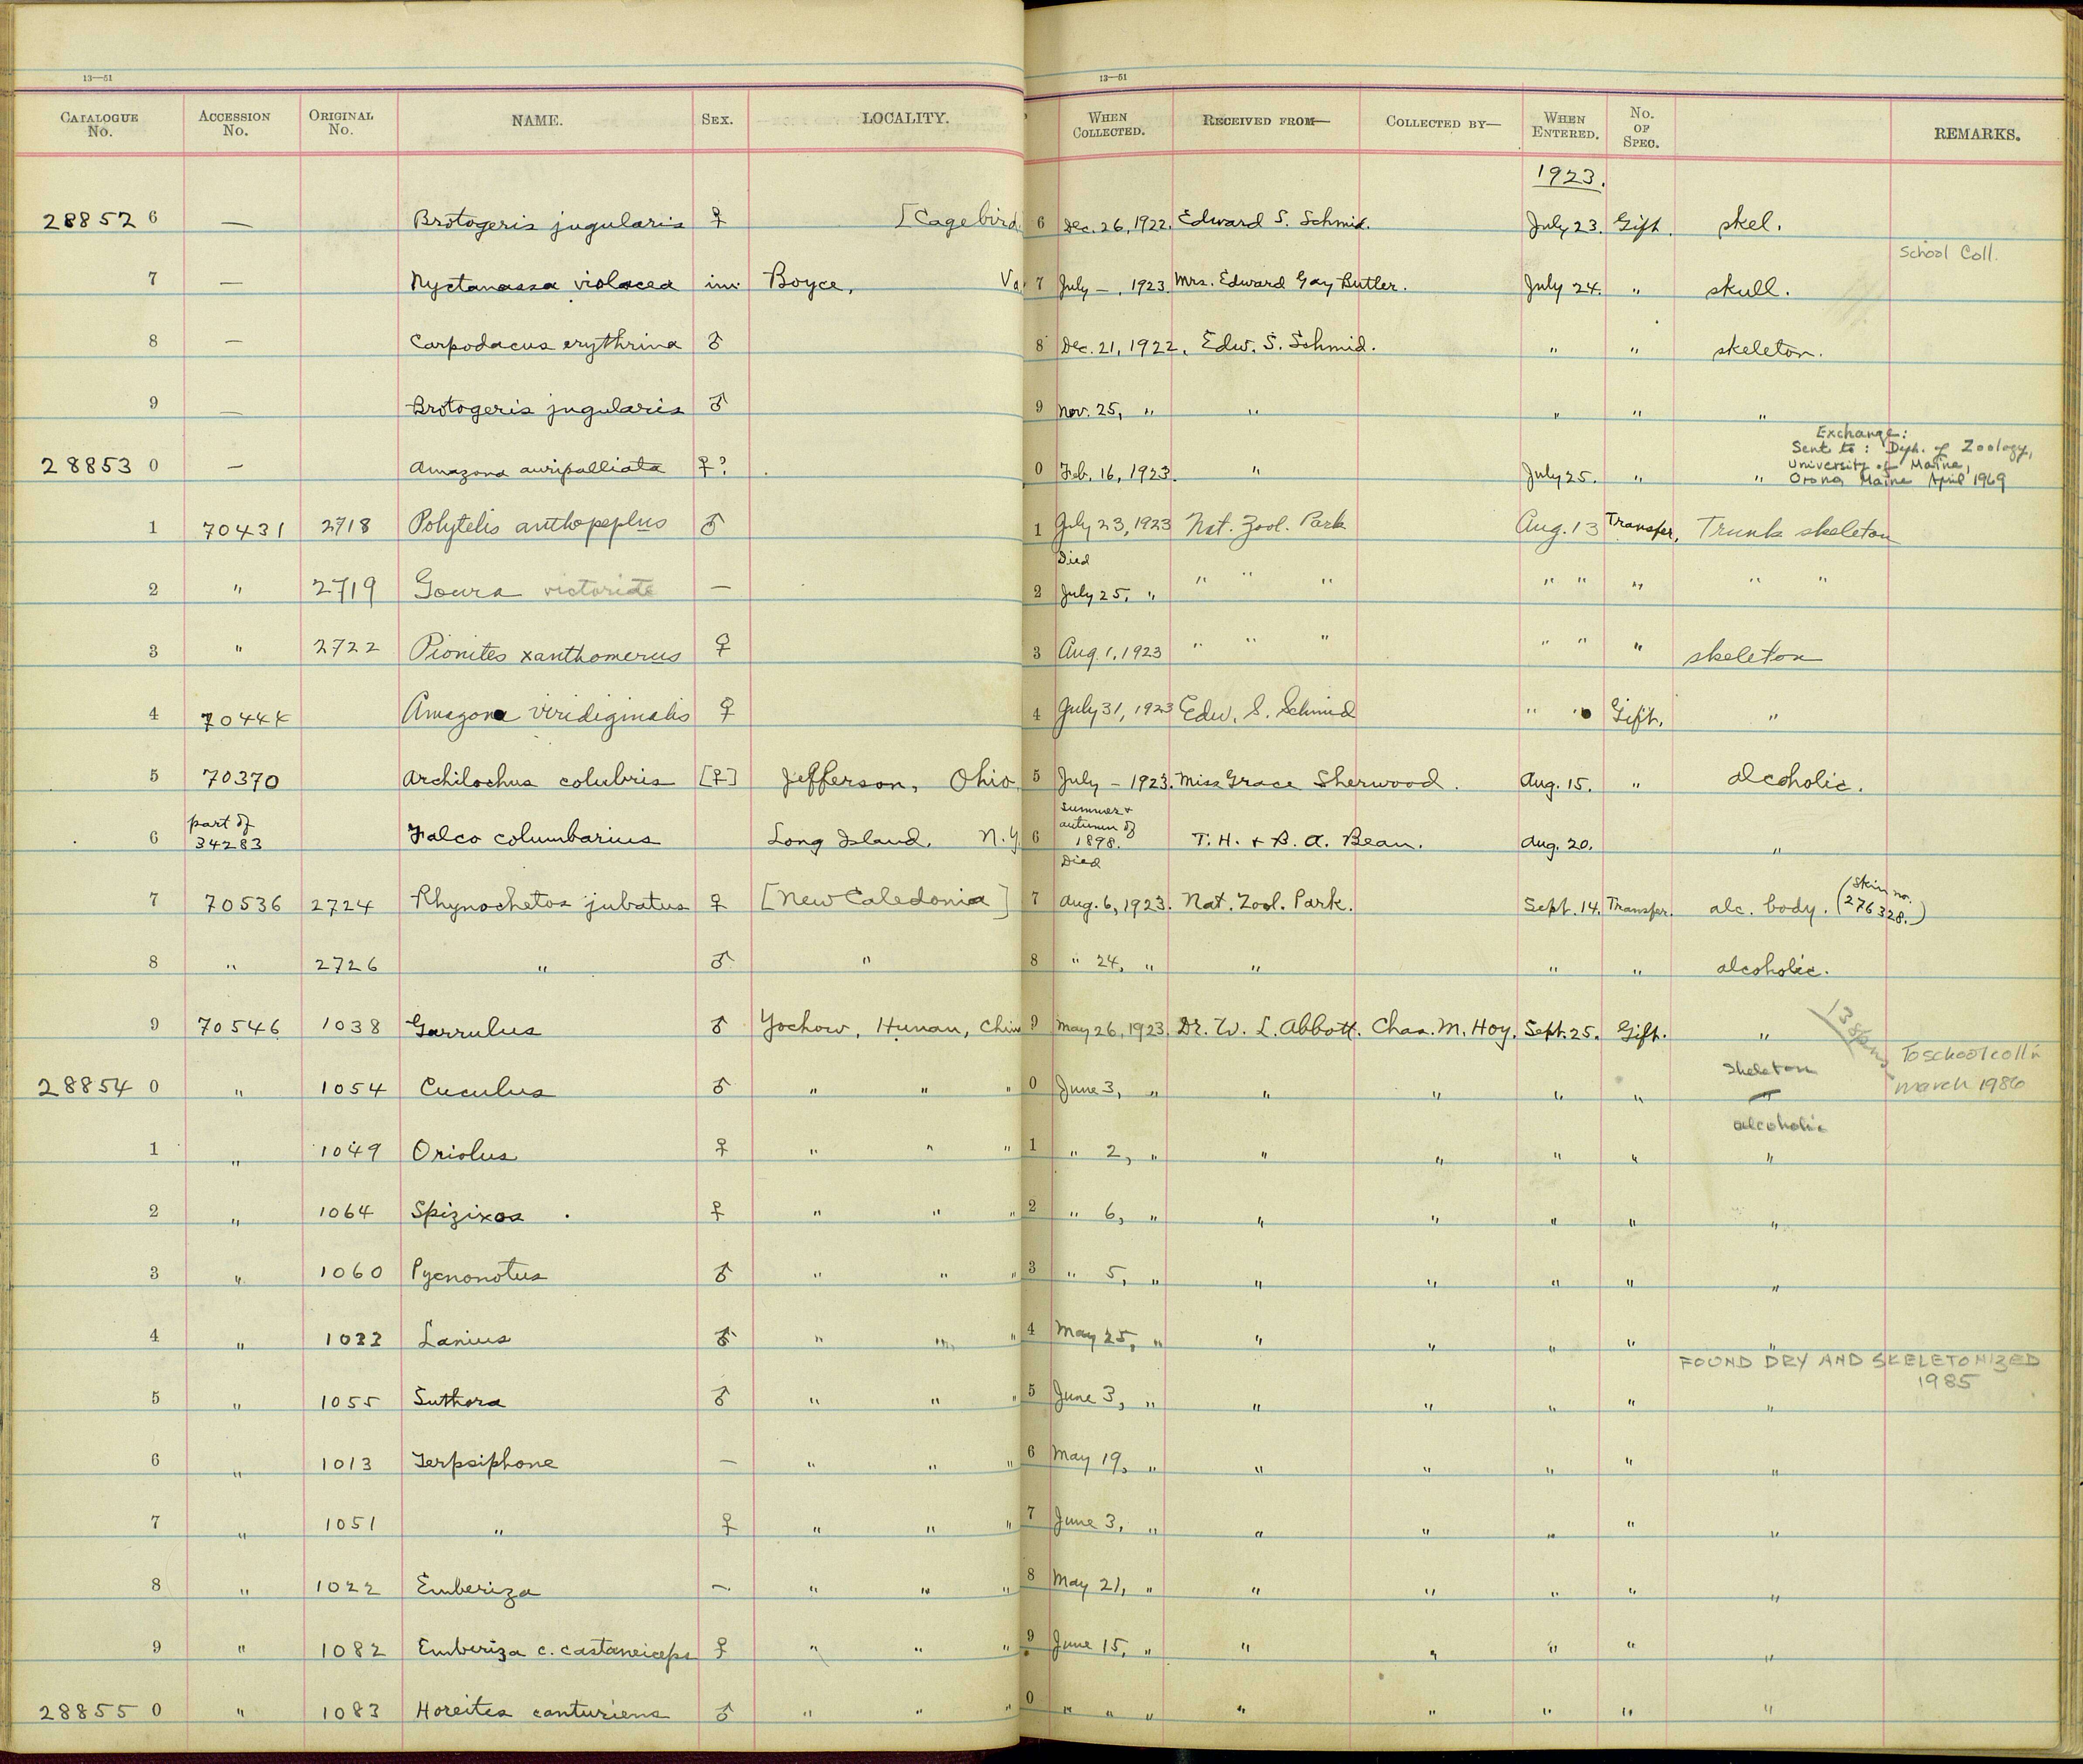 13—51 13—51
CATALOGUE No. ACCESSION No. ORIGINAL No. NAME. SEX. LOCALITY. WHEN COLLECTED. RECEIVED FROM— COLLECTED BY— WHEN ENTERED. No. OF SPEC. REMARKS.
1923.
28852 6 — Brotogeris jugularis ♀ [Cage bird 6 Dec. 26, 1922. Edward S. Schmid. July 23. Gift. skel.
School Coll.
7 — Nyctanassa violacea im. Boyce, Va 7 July —, 1923. Mrs. Edward Gay Butler. July 24. " skull.
8 — Carpodacus erythrina ♂ 8 Dec. 21, 1922. Edw. S. Schmid. " " skeleton.
9 — Brotogeris jugularis ♂ 9 Nov. 25, " " " " "
Exchange:
Sent to: Dept. of Zoology,
University of Maine,
Orono, Maine April 1969
28853 0 — Amazona auripalliata ♀? 0 Feb. 16, 1923. " July 25. " "
1 70431 2718 Polytelis anthopeplus ♂ 1 July 23, 1923 Nat. Zool. Park Aug. 13 Transfer. Trunk skeleton
Died
2 " 2719 Goura victoria — 2 July 25, " " " " " " " " "
3 " 2722 Pionites xanthomerus ♀ 3 Aug. 1, 1923 " " " " " " skeleton
4 70444 Amazona viridiginalis ♀ 4 July 31, 1923 Edw. S. Schmid " " Gift. "
5 70370 Archilochus colubris [♀] Jefferson, Ohio. 5 July — 1923. Miss Grace Sherwood. Aug. 15. " alcoholic.
6 part of 34283 Falco columbarius Long Island, N.Y. 6 Summer + autumn of 1898. T. H. & B. A. Bean. Aug. 20. "
Died
7 70536 2724 Rhynochetos jubatus ♀ [New Caledonia] 7 Aug. 6, 1923. Nat. Zool. Park. Sept. 14. Transfer. alc. body. (Skin no. 276328.)
8 " 2726 " ♂ " 8 " 24, " " " " alcoholic.
9 70546 1038 Garrulus ♂ Yochow, Hunan, Chin 9 May 26, 1923. Dr. W. L. Abbott. Chas. M. Hoy. Sept. 25. Gift. "
To school coll'n
March 1986
skeleton
28854 0 " 1054 Cuculus ♂ " " " 0 June 3, " " " " " "
alcoholic
1 " 1049 Oriolus ♀ " " " 1 " 2, " " " " " "
2 " 1064 Spizixos ♀ " " " 2 " 6, " " " " " "
3 " 1060 Pycnonotus ♂ " " " 3 " 5, " " " " " "
4 " 1033 Lanius ♂ " " " 4 May 25, " " " " " "
FOUND DRY AND SKELETONIZED
1985
5 " 1055 Suthora ♂ " " " 5 June 3, " " " " " "
6 " 1013 Terpsiphone — " " " 6 May 19, " " " " " "
7 " 1051 " ♀ " " " 7 June 3, " " " " " "
8 " 1022 Emberiza — " " " 8 May 21, " " " " " "
9 " 1082 Emberiza c. castaneiceps ♀ " " " 9 June 15, " " " " " "
28855 0 " 1083 Horeites canturiens ♂ " " " 0 " " " " " " " "